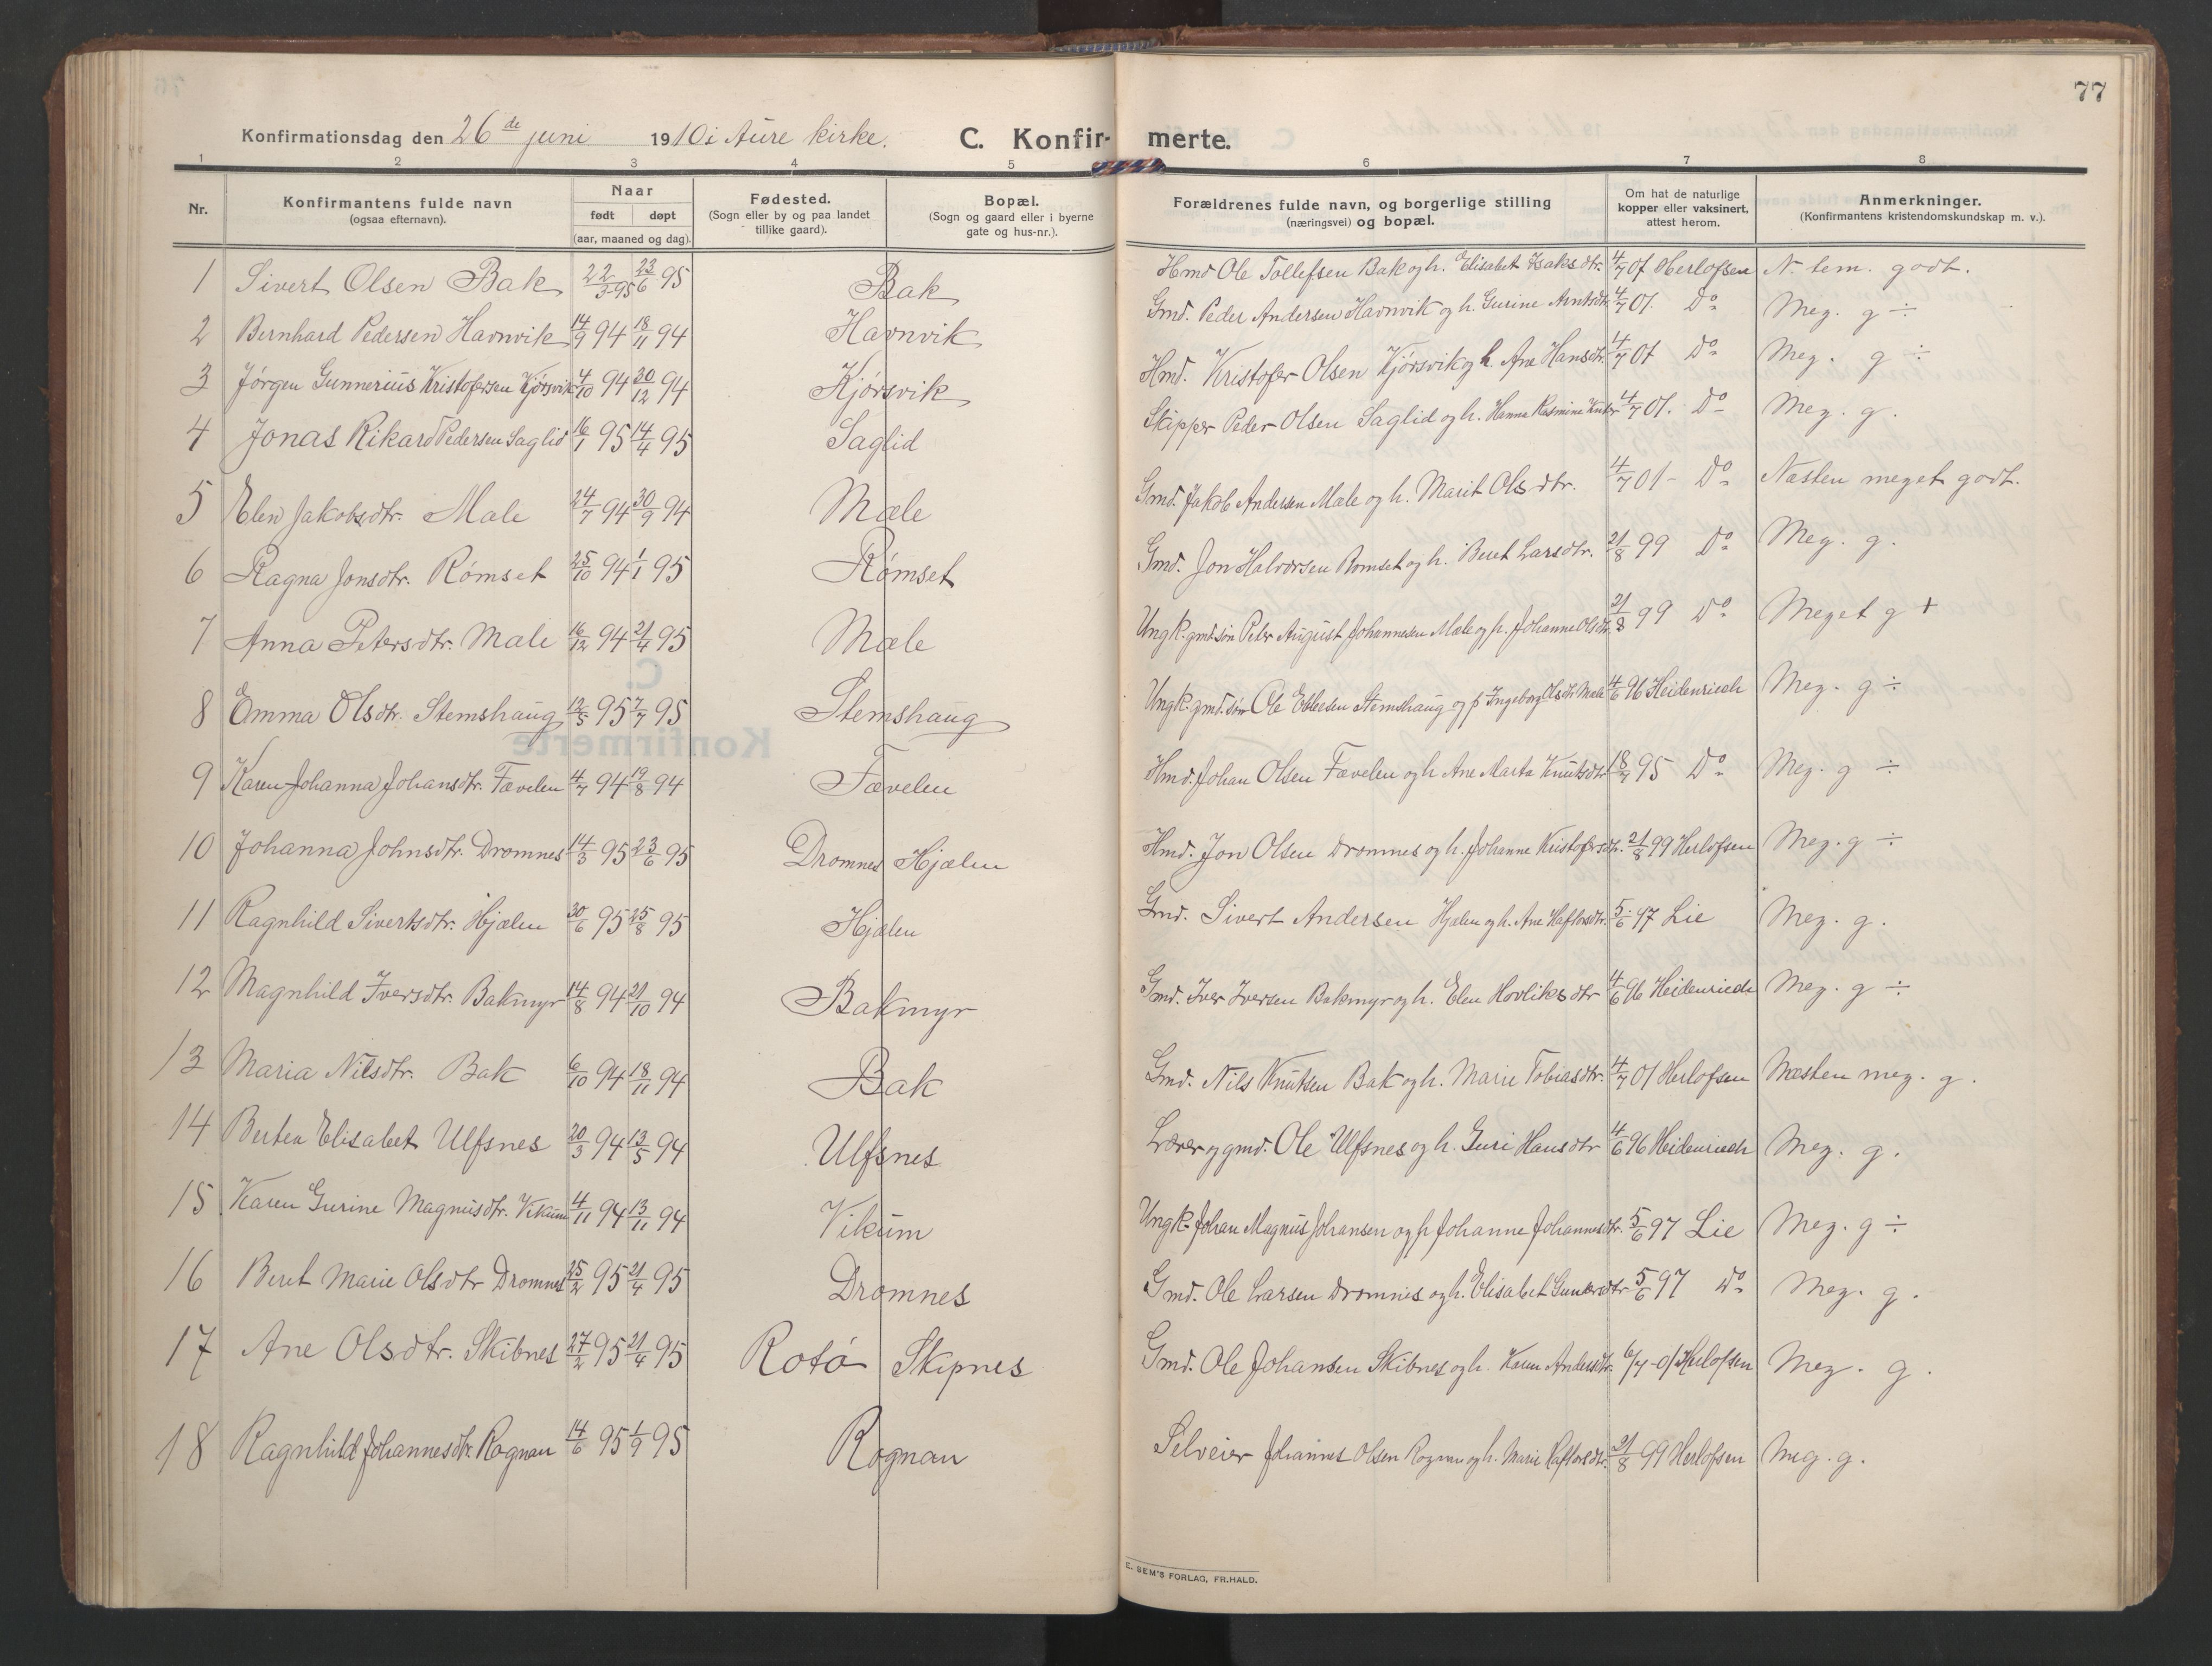 77
Konfirmationsdag den 26de juni 1910 i Aure kirke. C. Konfir- merte.
1 2 3 4 5 6 7 8
Nr. Konfirmantens fulde navn (ogsaa efternavn). Naar født døpt (aar, maaned og dag). Fødested. (Sogn eller by og paa landet tillike gaard). Bopæl. (Sogn og gaard eller i byerne gate og hus-nr.). Forældrenes fulde navn, og borgerlige stilling (næringsvei) og bopæl. Om hat de naturlige kopper eller vaksinert, attest herom. Anmerkninger. (Konfirmantens kristendomskundskap m. v.).
1 Sivert Olsen Bak 22/3-95 23/6 95 Bak Hmd Ole Tollefsen Bak og h. Elisabet Isaksdtr. 4/7 01 Herlofsen N. tem. godt.
2 Bernhard Pedersen Havnvik 14/9 94 18/11 94 Havnvik Gmd. Peder Andersen Havnvik og h. Gurine Arntsdtr 4/7 01. Do Meg. g ÷
3 Jørgen Gunnerius Kristofersen Kjørsvik 4/10 94 30/12 94 Kjørsvik Hmd. Kristofer Olsen Kjørsvik og h. Ane Hansdtr. 4/7 01 Do Meg. g ÷
4 Jonas Rikard Pedersen Saglid 16/1 95 14/4 95 Saglid Skipper Peder Olsen Saglid og h. Hanna Rasmine 4/7 01. Do Meg. g.
5 Elen Jakobsdtr. Mæle 24/7 94 30/9 94 Mæle Gmd. Jakob Andersen Mæle og h. Marit Olsdtr. 4/7 01- Do Næsten meget godt.
6 Ragna Jonsdtr. Rømset 25/10 94 1/1 95 Rømset Gmd. Jon Halvorsen Romset og h. Beret Larsdtr. 21/8 99 Do Meg. g.
7 Anna Petersdtr. Mæle 16/12 94 21/4 95 Mæle Ungk. gmd.søn Peter August Johannesen Mæle og p. Johanne Olsdtr. 21/8 99 Do Meget g +
8 Emma Olsdtr. Stemshaug 12/5 95 7/7 95 Stemshaug Ungk. gmd. søn Ole Ebbesen Stemshaug og p Ingeborg Olsdtr Mæle 4/6 96 Heidenriech Meg. g ÷
9 Karen Johanna Johansdtr. Fævelen 4/7 94 19/8 94 Fævelen Hmd. Johan Olsen Fævelen og h Ane Marta Knutsdtr 18/7 95 Do Meg. g ÷
10 Johanna Johnsdtr. Dromnes 14/3 95 23/6 95 Dromnes Hjælen Hmd. Jon Olsen Dromnes og h. Johanne Kristofersdtr. 21/8 99 Herlofsen Meg. g ÷
11 Ragnhild Sivertsdtr. Hjælen 30/6 95 25/8 95 Hjælen Gmd. Sivert Andersen Hjælen og h. Ane Haftorsdtr. 5/6 97 Lie Meg. g.
12 Magnhild Iversdtr. Bakmyr 14/8 94 21/10 94 Bakmyr Gmd. Iver Iversen Bakmyr og h. Elen Hovliksdtr 4/6 96 Heidenriech Meg. g ÷
13 Maria Nilsdtr. Bak 6/10 94 18/11 94 Bak Gmd. Nils Knutsen Bak og h. Marie Tobiasdtr. 4/7 01 Herlofsen Næsten meg. g.
14 Bertea Elisabet Ulfsnes 20/3 94 13/5 94 Ulfsnes Lærer og gmd. Ole Ulfsnes og h. Guri Hansdtr 4/6 96 Heidenriech Meg. g.
15 Karen Gurine Magnusdtr. Vikum 4/11 94 13/11 94 Vikum Ungk. Johan Magnus Johansen og p Johanne Johannesdtr. 5/6 97 Lie Meg. g ÷
16 Beret Marie Olsdtr Dromnes 25/2 95 21/4 95 Dromnes Gmd. Ole Larsen Dromnes og h. Elisabet Gunnersdtr 5/6 97 Do Meg. g.
17 Ane Olsdtr. Skibnes 27/2 95 21/4 95 Rotø Skipnes Gmd. Ole Johansen Skibnes og h. Karen Andersdtr. 6/7-01 Herlofsen Meg. g.
18 Ragnhild Johannesdtr. Rognan 14/6 95 1/9 95 Rognan Selveier Johannes Olsen Rognan og h. Marie Haftorsdtr. 21/8 99 Herlofsen Meg. g.
E. SEM'S FORLAG, FR.HALD.